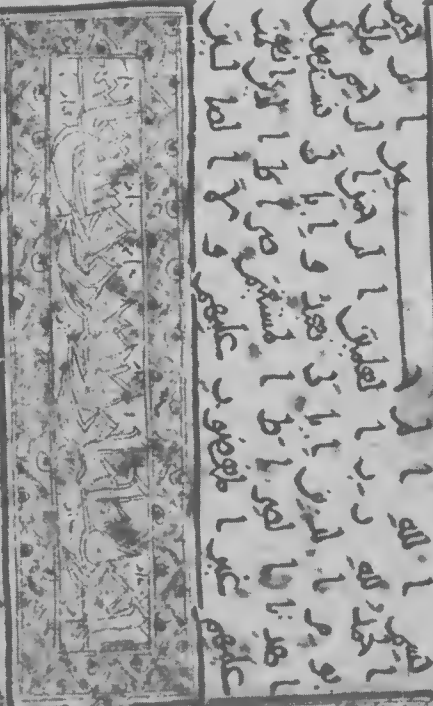 بسم الله الرحمن الرحيم
الحمد لله رب العلمين الرحمن الرحيم ملك
يوم الدين اياك نعبد واياك نستعين
اهدنا الصراط المستقيم صراط الذين انعمت
عليهم غير المغضوب عليهم ولا الضالين